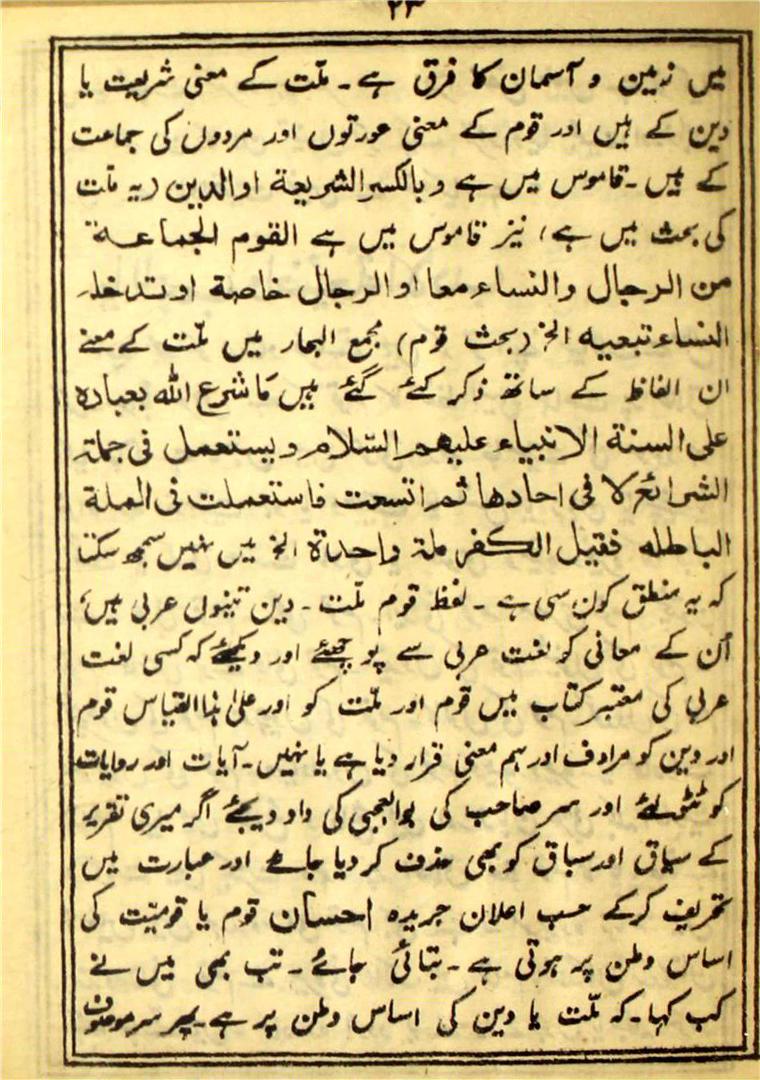 ۲۳
میں زمین و آسمان کا فرق ہے۔ ملّت کے معنی شریعت یا
دین کے ہیں اور قوم کے معنی عورتوں اور مردوں کی جماعت
کے ہیں۔ قاموس میں ہے وبالکسر الشریعة او الدین (یہ ملّت
کی بحث میں ہے) نیز قاموس میں ہے القوم الجماعة
من الرجال والنساء معا او الرجال خاصة او تدخله
النساء تبعیه الخ (بحث قوم) مجمع البحار میں ملّت کے معنے
ان الفاظ کے ساتھ ذکر کئے گئے ہیں ما شرع اللہ بعباده
علی السنة الانبیاء علیهم السّلام ویستعمل فی جملة
الشرائع لا فی احادها ثم اتسعت فاستعملت فی الملة
الباطله فقیل الکفر ملة واحدة الخ میں نہیں سمجھ سکتا
کہ یہ منطق کون سی ہے۔ لفظ قوم ملّت۔ دین تینوں عربی ہیں،
اُن کے معانی کو لغت عربی سے پوچھئے اور دیکھئے کہ کسی لغت
عربی کی معتبر کتاب میں قوم اور ملّت کو اور علیٰ ہذا القیاس قوم
اور دین کو مرادف اور ہم معنی قرار دیا ہے یا نہیں۔ آیات اور روایات
کو ٹٹولئے اور سر صاحب کی بوالعجبی کی داد دیجئے اگر میری تقریر
کے سیاق اور سباق کو بھی حذف کر دیا جائے اور عبارت میں
تحریف کرکے حسب اعلان جریدہ احسان قوم یا قومیّت کی
اساس وطن پر ہوتی ہے۔ بتائی جائے۔ تب بھی میں نے
کب کہا۔ کہ ملّت یا دین کی اساس وطن پر ہے۔ پھر سر موصوف